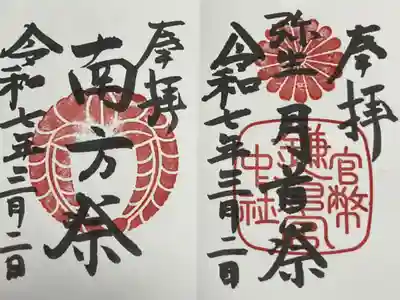 奉拝
弥生 月首祭
令和七年三月二日
官幣
鎌倉宮
中社
奉拝
南方祭
令和七年三月二日